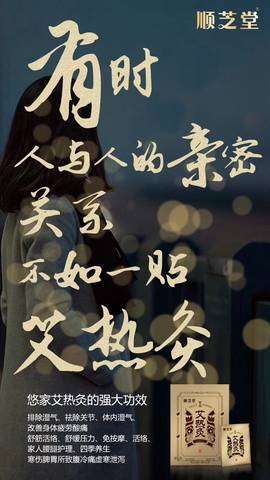 顺芝堂
有时
人与人的亲密
关系
不如一贴
艾热灸
悠家艾热灸的强大功效
排除湿气、祛除关节、体内湿气、
改善身体疲劳酸痛
舒筋活络、舒缓压力、免按摩、活络、
家人腰腿护理、四季养生
寒伤脾胃所致腹冷痛虚寒泄泻
顺芝堂
艾热灸
艾热灸